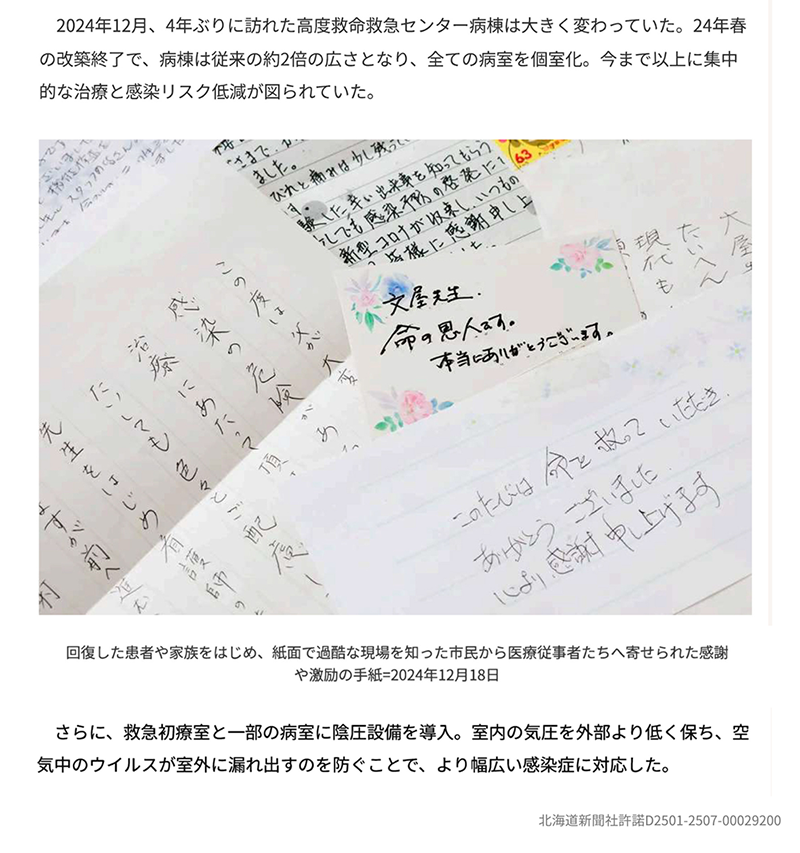 2024年12月、4年ぶりに訪れた高度救命救急センター病棟は大きく変わっていた。24年春
の改築終了で、病棟は従来の約2倍の広さとなり、全ての病室を個室化。今まで以上に集中
的な治療と感染リスク低減が図られていた。
ました。
しびれと痛みは少し残ってい
験した辛い出来事を知ってもらう
しでも感染予防の啓発に
新型コロナが収束し、いつもの
皆様に感謝申し上
63
大屋
たいへん
現代も
文屋先生.
命の恩人です。
本当にありがとうございます。
この度は父が大変
感染の危険
治療にめたって
たいしても色々とご配慮
先生をはじめ看護師の
このたびは命を救っていただき
ありがとうございました
心より感謝申し上げます
回復した患者や家族をはじめ、紙面で過酷な現場を知った市民から医療従事者たちへ寄せられた感謝
や激励の手紙=2024年12月18日
さらに、救急初療室と一部の病室に陰圧設備を導入。室内の気圧を外部より低く保ち、空
気中のウイルスが室外に漏れ出すのを防ぐことで、より幅広い感染症に対応した。
北海道新聞社許諾D2501-2507-00029200